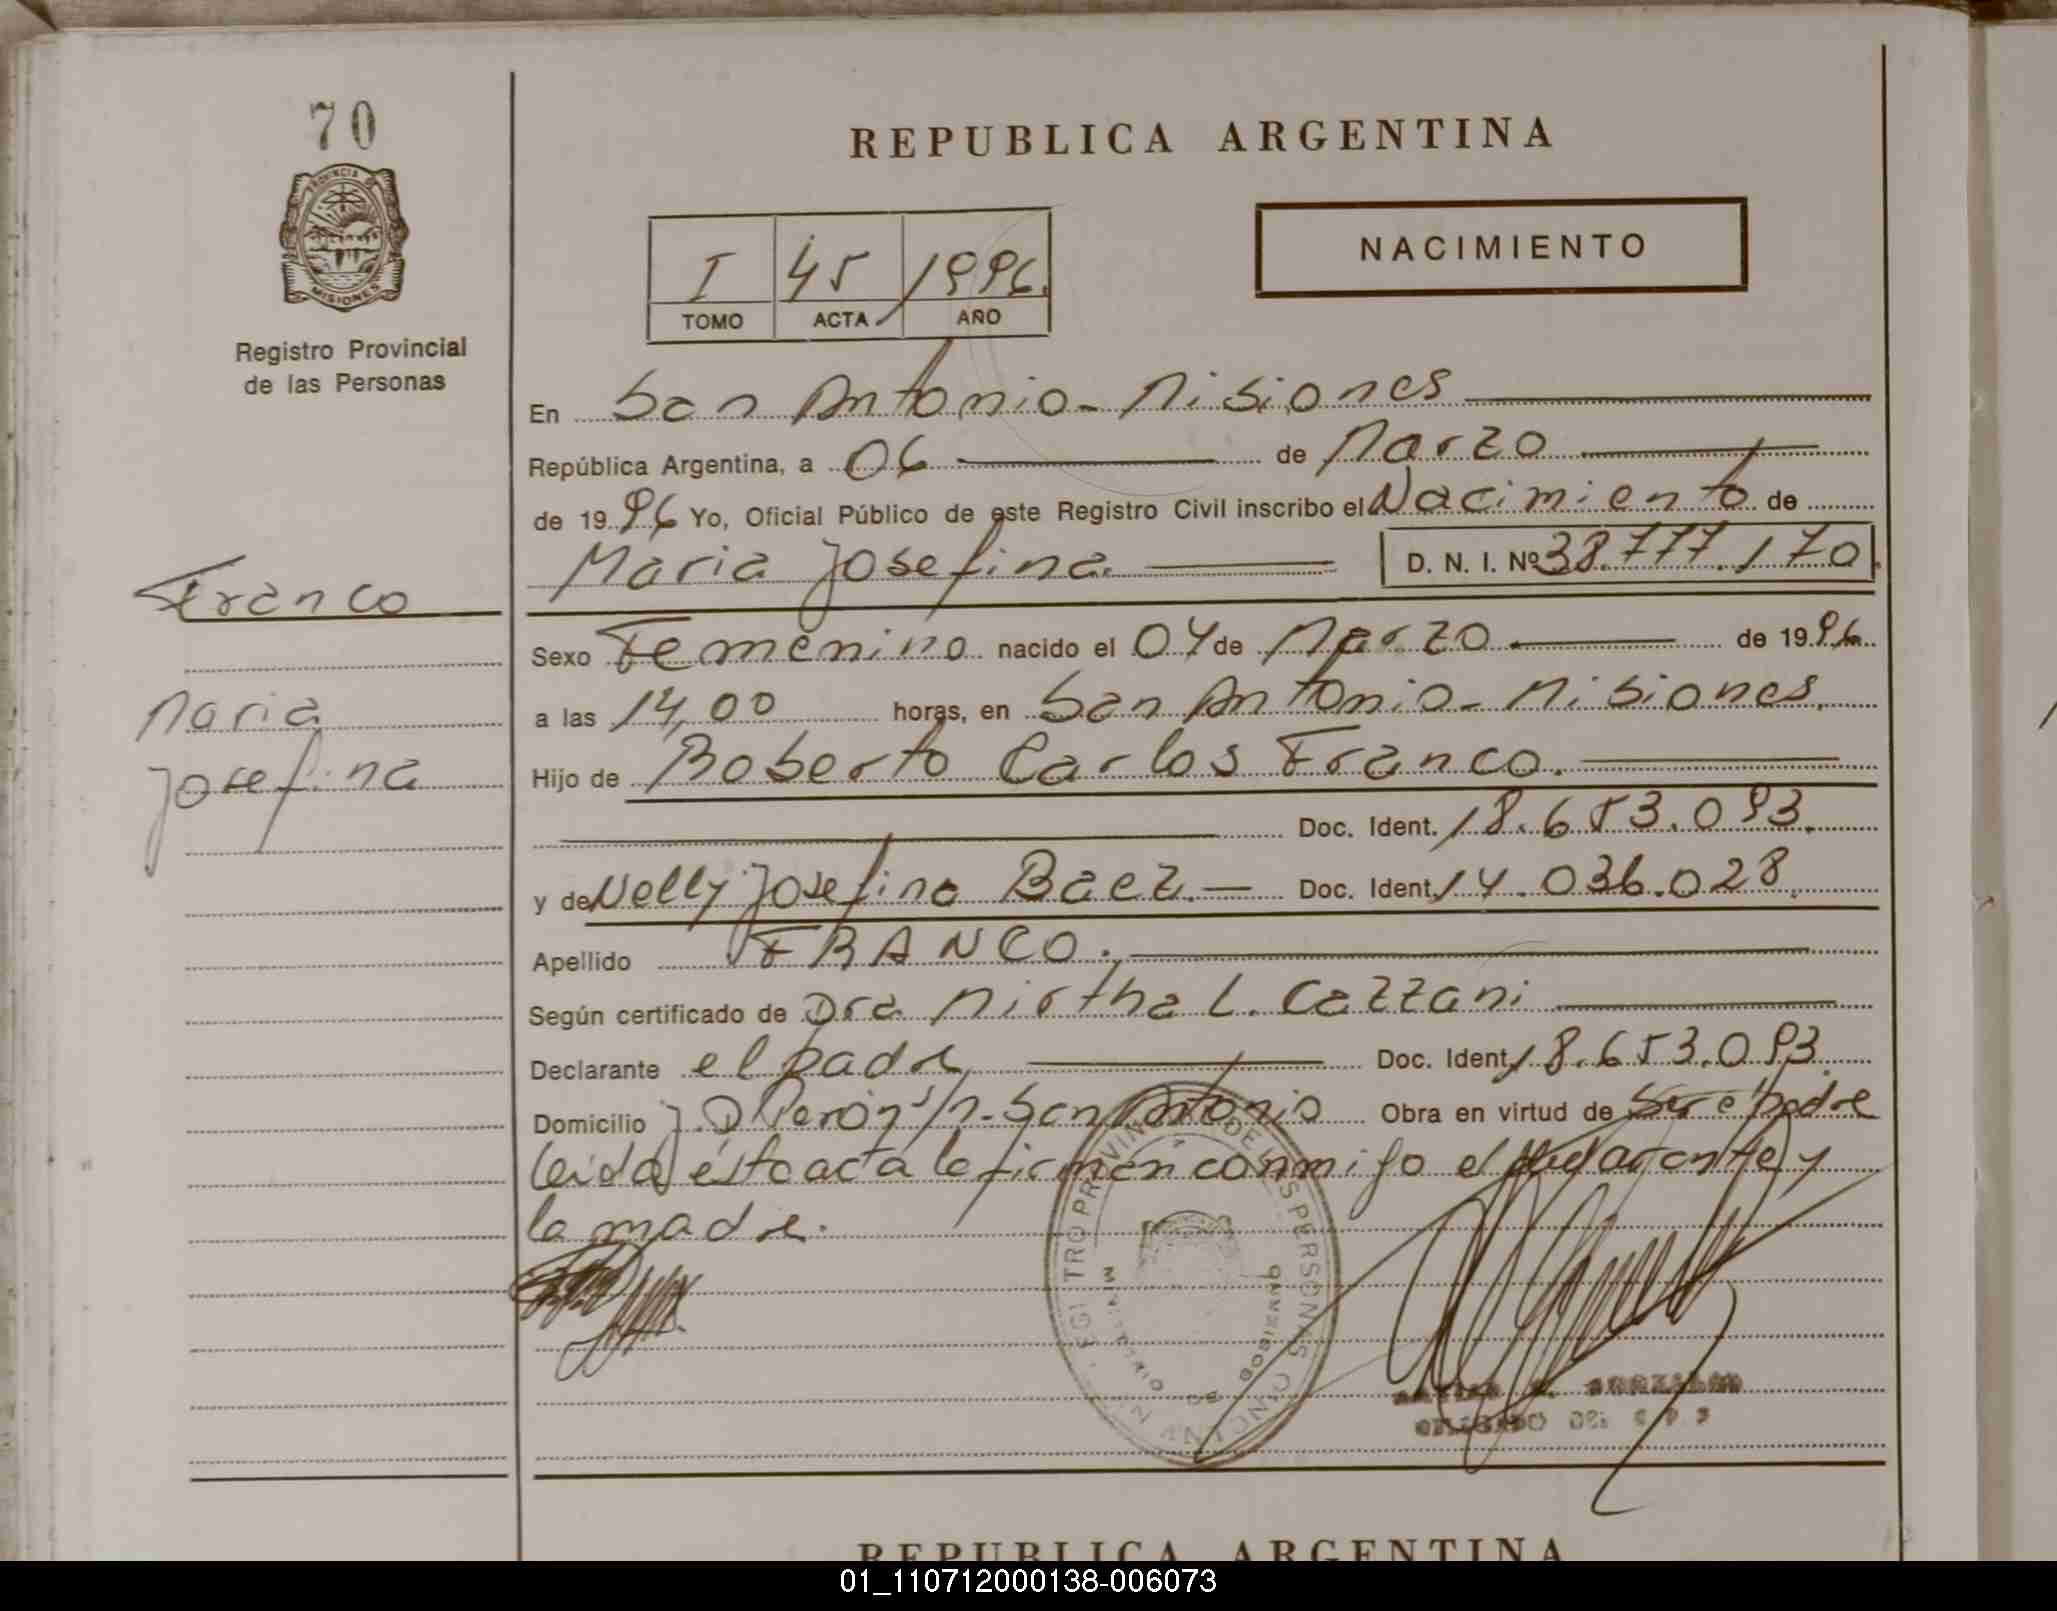 70
PROVINCIA DE
MISIONES
Registro Provincial
de las Personas
REPUBLICA ARGENTINA
NACIMIENTO
I 45 1996.
TOMO ACTA AÑO
En San Antonio - Misiones
República Argentina, a 06 de Marzo
de 1996 Yo, Oficial Público de este Registro Civil inscribo el Nacimiento de
Maria Josefina. D. N. I. Nº 38.777.170
Franco
Sexo Femenino nacido el 04 de Marzo de 1996
Maria
a las 14,00 horas, en San Antonio - Misiones.
Josefina
Hijo de Roberto Carlos Franco.
Doc. Ident. 18.653.093.
y de Nelly Josefina Baez. Doc. Ident. 14.036.028.
Apellido FRANCO.
Según certificado de Dra Mirtha L. Cazzani
Declarante el padre Doc. Ident. 18.653.093
Domicilio J. D Perón s/n - San Antonio Obra en virtud de ser el padre
leida esta acta la firman conmigo el declarante y
la madre.
REPUBLICA ARGENTINA
01_110712000138-006073